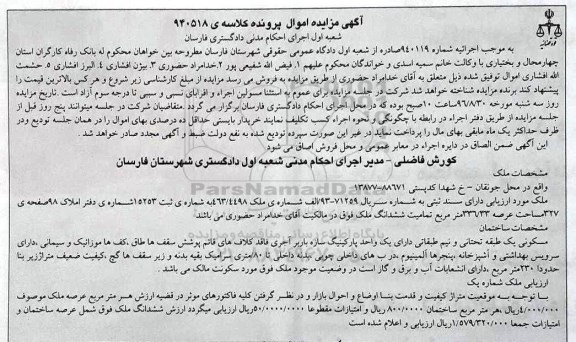 آگهی مزایده اموال پرونده کلاسه ی ۹۴۰۵۱۸
شعبه اول اجرای احکام مدنی دادگستری فارسان
به موجب اجرائیه شماره ۹۴۰۱۱۹صادره از شعبه اول دادگاه عمومی حقوقی شهرستان فارسان مطروحه بین خواهان محکوم له بانک رفاه کارگران استان
چهارمحال و بختیاری با وکالت خانم سمیه اسدی و خواندگان محکوم علیهم ۱. فیض الله شفیعی پور ۲.خدامراد حضوری ۳. بیژن افشاری ۴. البرز افشاری ۵. حشمت
الله افشاری اموال توقیف شده ذیل متعلق به آقای خدامراد حضوری از طریق مزایده به فروش می رسد مزایده از مبلغ کارشناسی زیر شروع و هر کس بالاترین قیمت را
پیشنهاد کند برنده مزایده شناخته خواهد شد شرکت در جلسه مزایده برای عموم به استثنا مسولین اجراء و اقربای نسبی و سببی تا درجه سوم آزاد است. تاریخ مزایده
روز سه شنبه مورخه ۹۶/۸/۳۰ساعت ۱۰صبح بوده که در محل اجرای احکام دادگستری فارسان برگزار می گردد .متقاضیان شرکت در جلسه میتوانند پنج روز قبل از
جلسه مزایده از طریق دفتر اجراء در رابطه با چگونگی و نحوه اجراء کسب تکلیف نمایند خریدار بایستی حداقل ده درصدی بهای اموال را در همان جلسه تودیع ودر
ظرف حداکثر یک ماه مابقی بهای مال را پرداخت نماید در غیر این صورت سپرده تودیع شده به نفع دولت ضبط و آگهی مجدد صادر خواهد شد .
این آگهی ضمن الصاق در دایره اجراء در معابر عمومی و محل فروش الصاق می شود
کورش فاضلی - مدیر اجرای احکام مدنی شعبه اول دادگستری شهرستان فارسان
مشخصات ملک
واقع در محل جونقان - خ شهدا کدپستی ۸۸۶۷۱-۱۳۸۷۷
ملک مورد ارزیابی دارای سند ثبتی به شماره سریال ۷۱۲۵۹-۹۳/الف شماره ی ملک ۴۶۳/۴۴۹۸به شماره ی ثبت ۱۵۲۵۳شماره ی دفتر املاک ۹۸صفحه ی
۳۲۷به مساحت عرصه ۳۳۶/۳۳متر مربع تمامیت ششدانگ ملک فوق در مالکیت آقای خدامراد حضوری می باشد.
مشخصات ساختمان
مسکونی یک طبقه تحتانی و نیم طبقاتی دارای یک واحد پارکینگ سازه باربر آجری فاقد کلاف های قائم پوشش سقف ها طاق ،کف ها موزائیک و سیمانی ،دارای
سرویس بهداشتی و آشپزخانه ،پنجرها آلمینیوم ،در ب های داخلی چوبی ،بدنه داخلی تا ۸۰/متری سرامیک بقیه بدنه و زیر سقف ها گچ ،کیفیت ضعیف متراژزیر بنا
حدودا ۲۳۰متر مربع ،دارای انشعابات آب و برق و گاز است در وضعیت موجود ملک فوق مورد سکونت مالک می باشد .
ارزیابی ملک شماره یک
با توجه به موقعیت متراژ کیفیت و قدمت بنا اوضاع و احوال بازار و در نظر گرفتن کلیه فاکتورهای موثر در قضیه ارزش هر متر مربع عرصه ملک موصوف
۴/۰۰۰/۰۰۰ریال ،هر متر مربع ساختمان ۸۰۰/۰۰۰ ریال و امتیازات مقطوعا ۵۰/۰۰۰/۰۰۰ریال ارزیابی میگردد ارزش ششدانگ ملک فوق شامل عرصه ساختمان و
امتیازات جمعا ۱/۵۷۹/۳۲۰/۰۰۰ریال ارزیابی و اعلام شده است